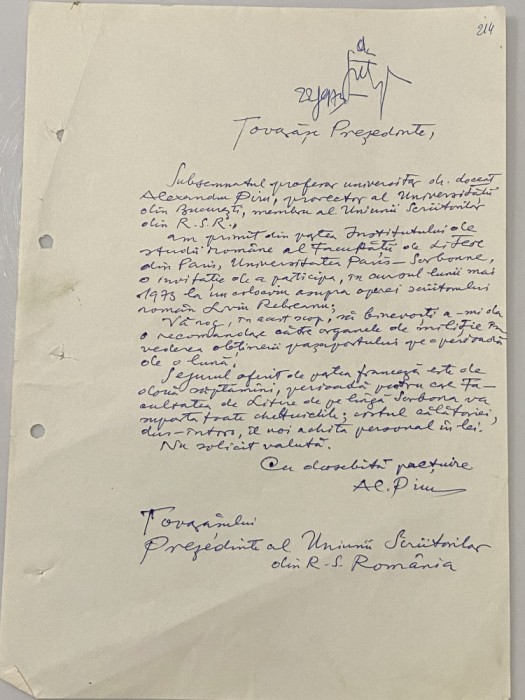 214
Tovarășe Președinte,
Subsemnatul profesor universitar dr. docent
Alexandru Piru, prorector al Universității
din București, membru al Uniunii Scriitorilor
din R.S.R.,
am primit din partea Institutului de
studii române al Facultății de Litere
din Paris, Universitatea Paris-Sorbonne,
o invitație de a participa, în cursul lunii mai
1973 la un colocviu asupra operei scriitorului
român Liviu Rebreanu;
Vă rog, în acest scop, să binevoiți a-mi da
o recomandare către organele de miliție în
vederea obținerii pașaportului pe o perioadă
de o lună.
Sejurul oferit de partea franceză este de
două săptămîni, perioadă pentru care Fa-
cultatea de Litere de pe lîngă Sorbona va
suporta toate cheltuielile; costul călătoriei,
dus-întors, îl voi achita personal în lei.
Nu solicit valută.
Cu deosebită prețuire
Al. Piru
Tovarășului
Președinte al Uniunii Scriitorilor
din R.S. România